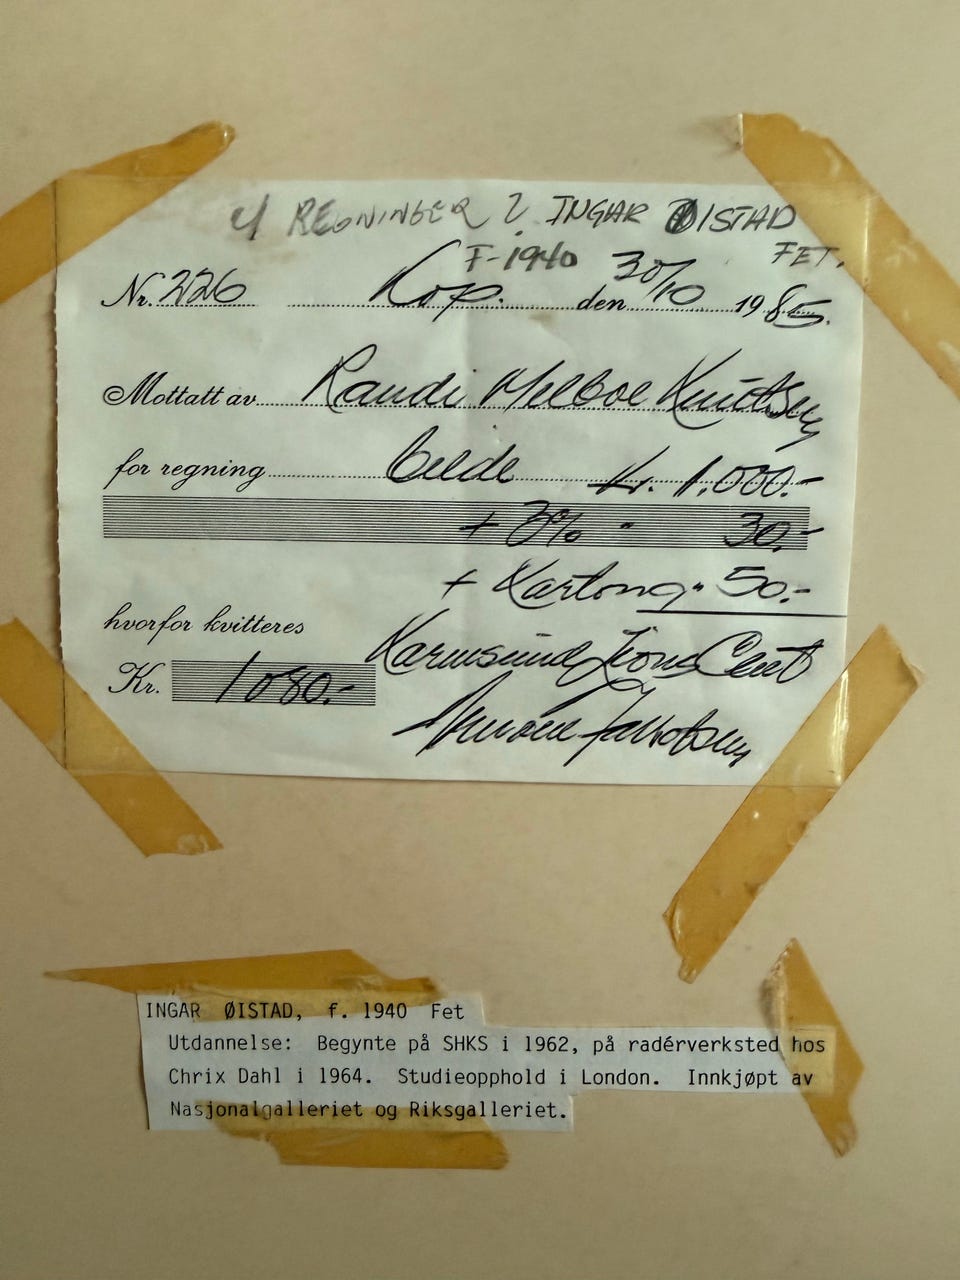 4 REGNINGER ? INGAR ØISTAD
F-1940 FET.
Nr. 226 Kop. den 30/10 1985.
Mottatt av Randi Melboe Knudtsen
for regning bilde Kr. 1.000.-
+ 3% - 30.-
+ Kartong - 50.-
hvorfor kvitteres
Karmsund
Kr. 1080.-
INGAR ØISTAD, f. 1940 Fet
Utdannelse: Begynte på SHKS i 1962, på radérverksted hos
Chrix Dahl i 1964. Studieopphold i London. Innkjøpt av
Nasjonalgalleriet og Riksgalleriet.